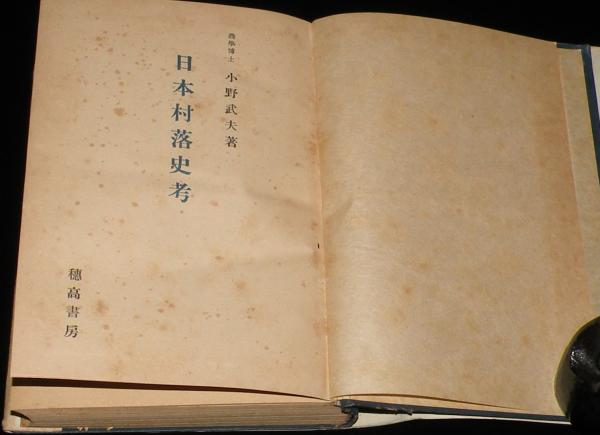 農學博士 小野武夫著
日本村落史考
穗高書房